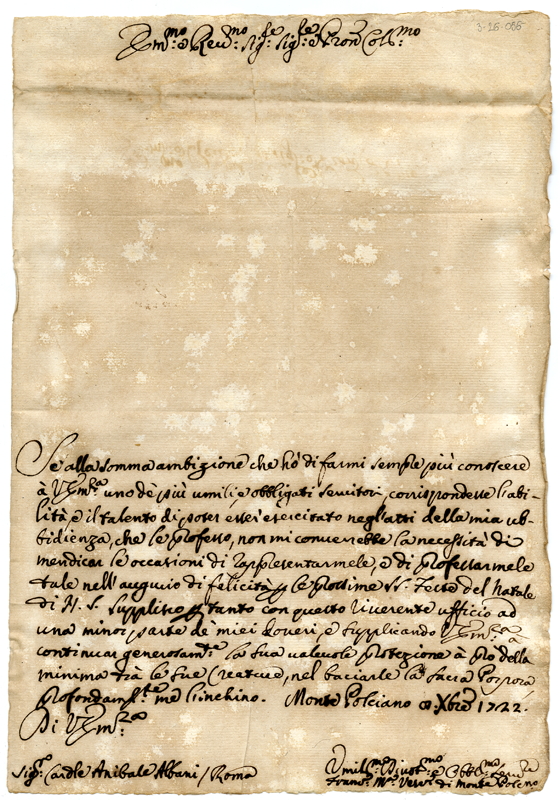 3-16-055
Em:mo e Reu:mo Sig:re Sig:re e Pron Col:mo
Se alla somma ambizione che hò di farmi sempre più conoscere
à V. Em:za uno de più umili, e obbligati seruitori, corrispondesse l'abi-
lità, e il talento di poter esser esercitato negl'atti della mia ub-
bidienza, che le professo, non mi conuerrebbe la necessità di
mendicar le occasioni di rappresentarmele, e di professarmele
tale nell'augurio di felicità p le prossime SS. Feste del Natale
di N. S. Supplisco p tanto con questo riuerente ufficio ad
una minor parte de miei doueri, e supplicando V. Em:za à
continuar generosam:te la sua valeuole protezione à pro della
minima trà le sue Creature, nel baciarle la sacra Porpora
profondam:te me l'inchino. Monte Polciano 8 Xbre 1722.
Di V. Em:za
Sig:r Cardle Anibale Albani / Roma
Umill:mo Diuot:mo e Obbl:mo
Fran:co M:a Vesc:o di Monte Polciano